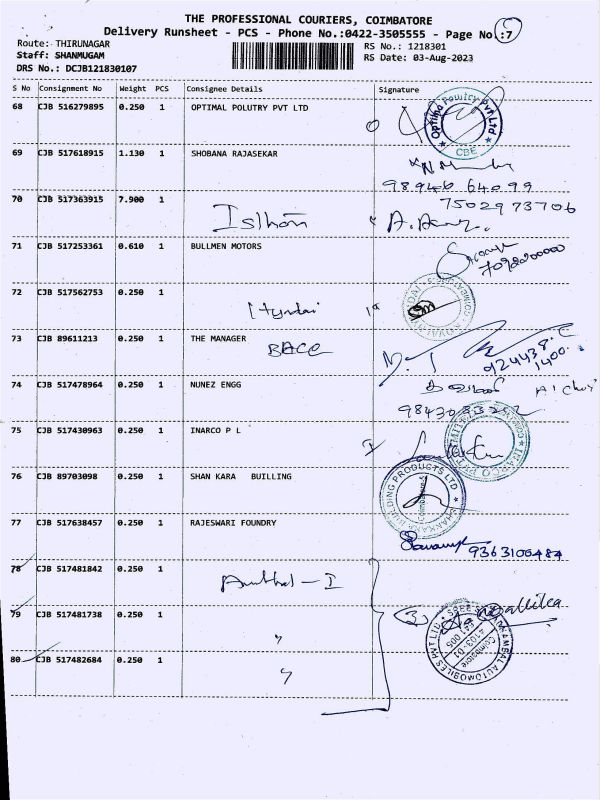 THE PROFESSIONAL COURIERS, COIMBATORE
Delivery Runsheet - PCS - Phone No.:0422-3505555 - Page No.:7
Route: THIRUNAGAR
Staff: SHANMUGAM
DRS No.: DCJB121830107
RS No.: 1218301
RS Date: 03-Aug-2023
S No Consignment No Weight PCS Consignee Details Signature
68 CJB 516279895 0.250 1 OPTIMAL POLUTRY PVT LTD
Optima Poultry Pvt Ltd CBE
69 CJB 517618915 1.130 1 SHOBANA RAJASEKAR
98946 64099
70 CJB 517363915 7.900 1
7502973706
71 CJB 517253361 0.610 1 BULLMEN MOTORS
72 CJB 517562753 0.250 1 Hyndai
73 CJB 89611213 0.250 1 THE MANAGER
74 CJB 517478964 0.250 1 NUNEZ ENGG
75 CJB 517430963 0.250 1 INARCO P L
76 CJB 89703098 0.250 1 SHAN KARA BUILLING
BUILDING PRODUCTS LTD
77 CJB 517638457 0.250 1 RAJESWARI FOUNDRY
9363100484
78 CJB 517481842 0.250 1
79 CJB 517481738 0.250 1 "
80 CJB 517482684 0.250 1 "
AUTOMOBILES PVT LTD